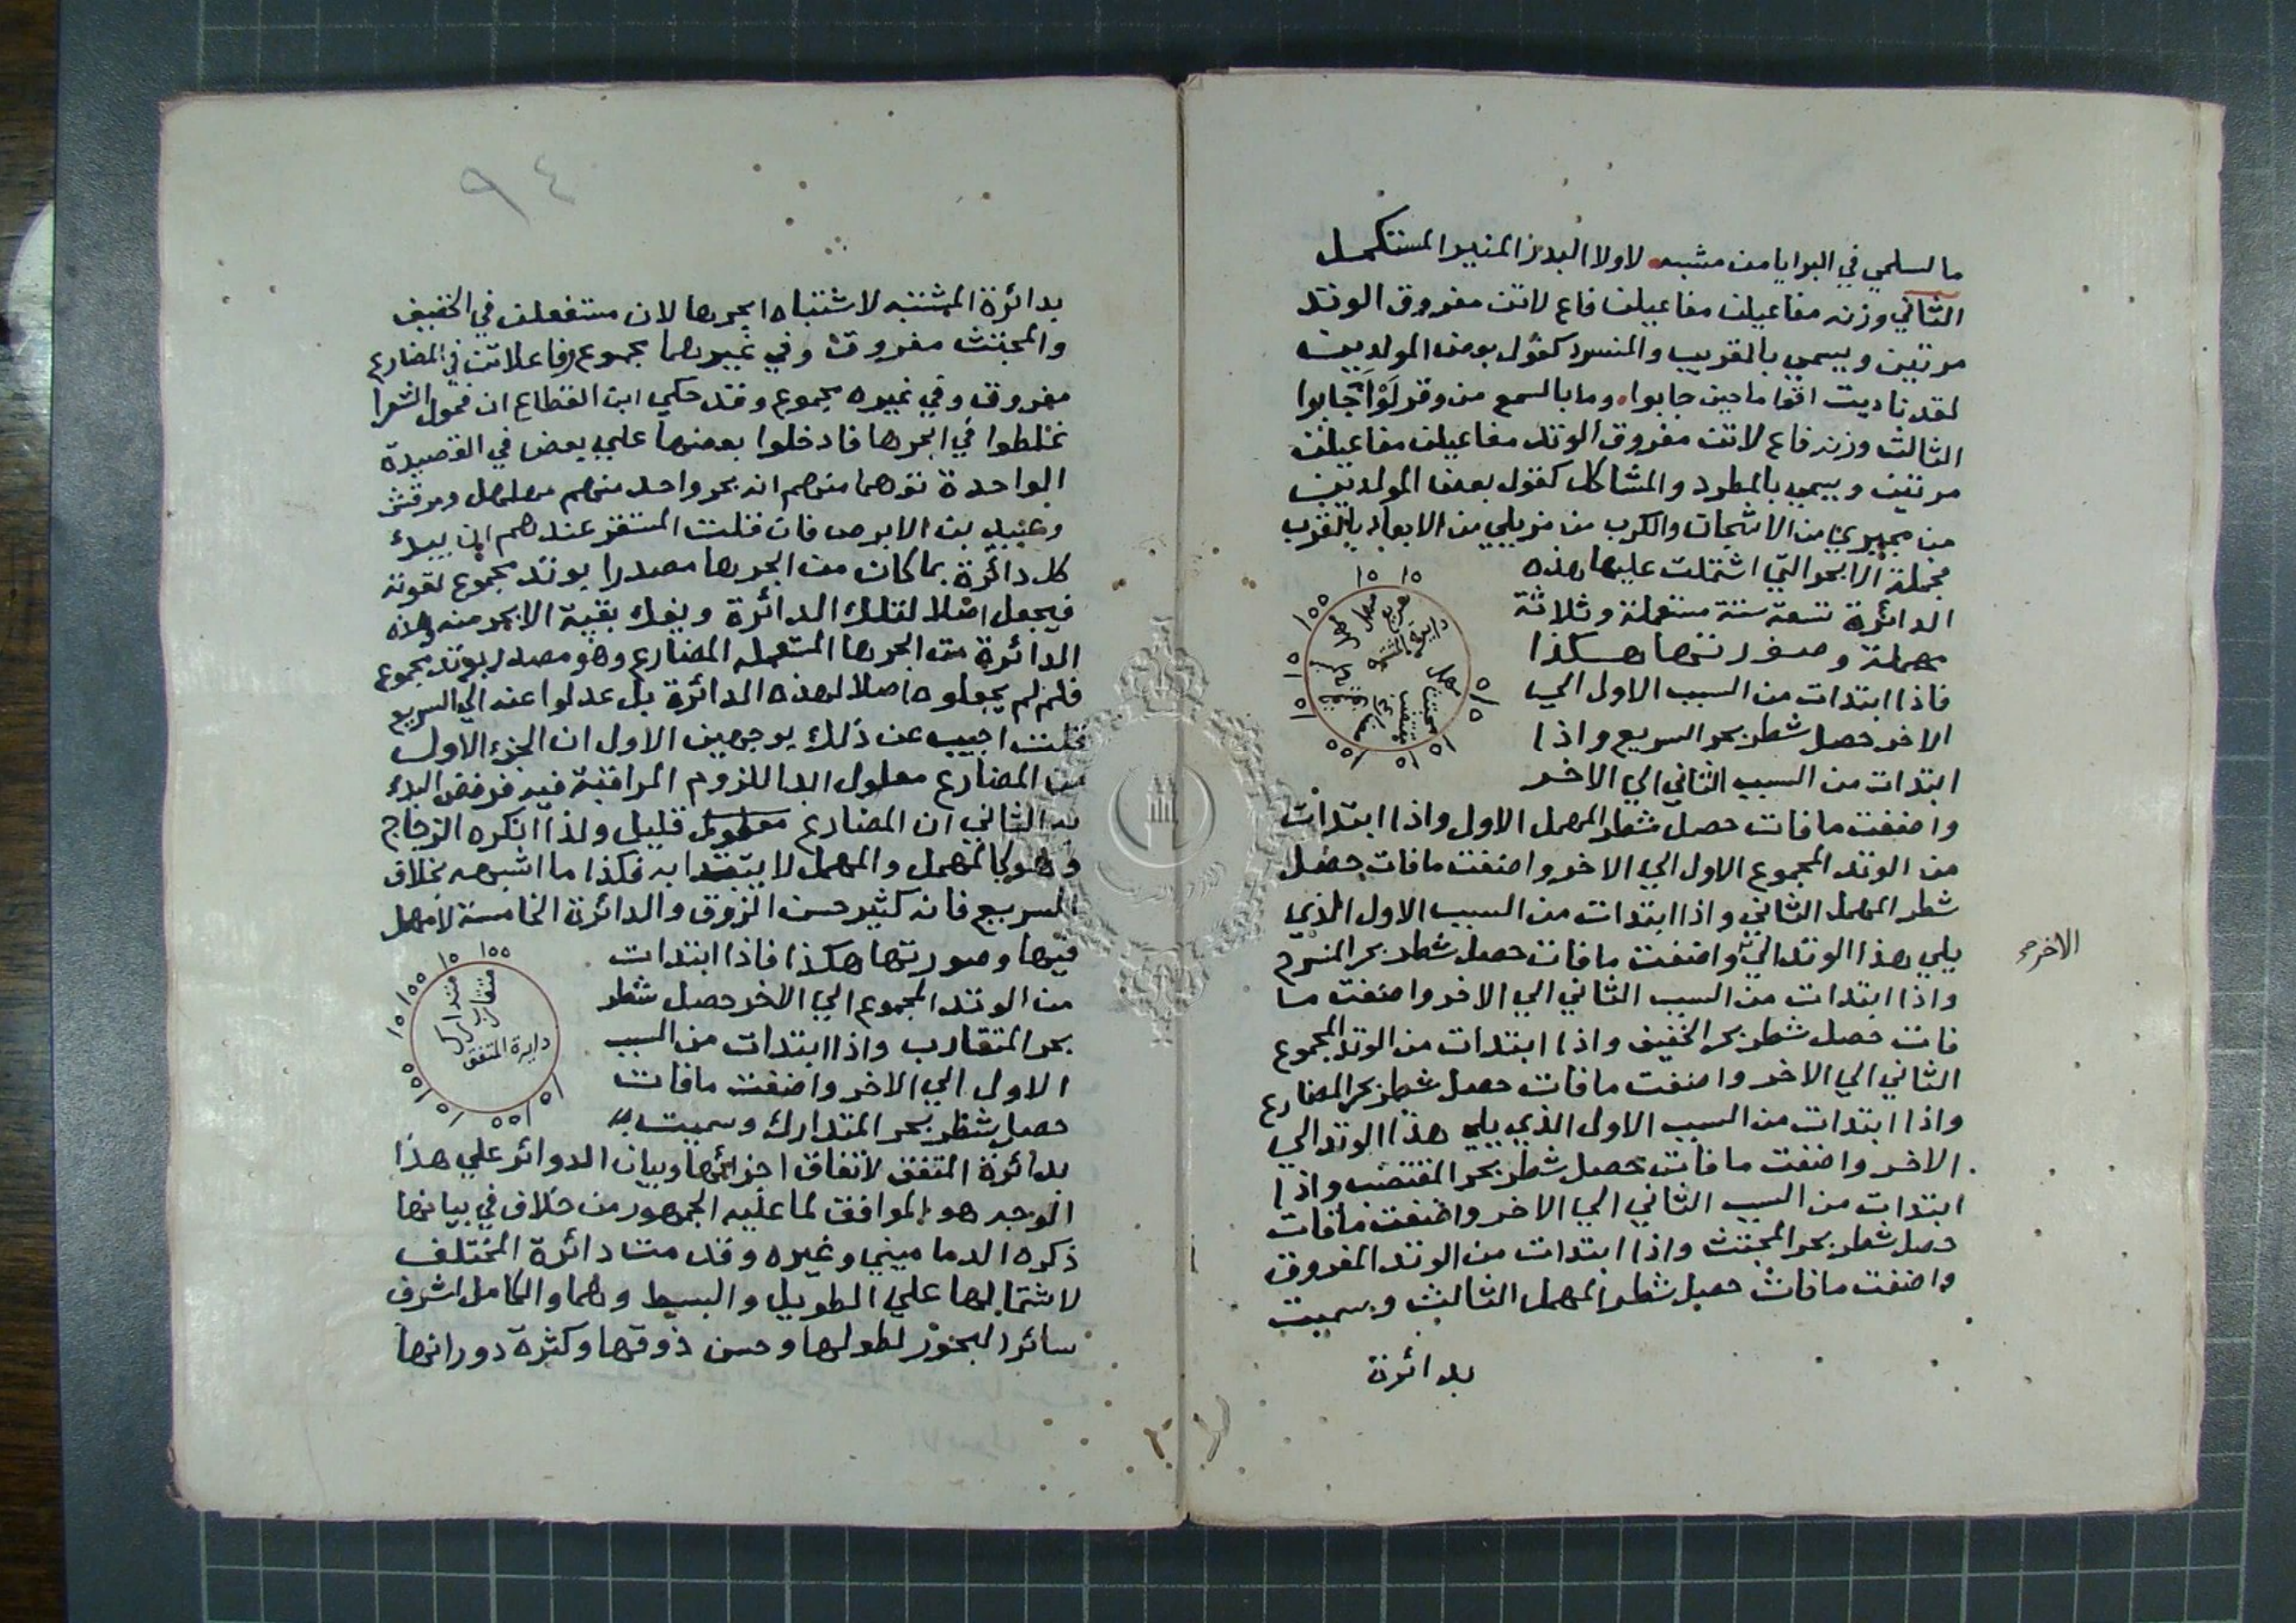 ما لسلمي في البرايا من مشبه لا ولا البدر المنير المستكمل
الثاني وزنه مفاعيلن مفاعيلن فاع لاتن مفروق الوتد
مرتين ويسمي بالقريب والمنسرد كقول بعض المولدين
لقد ناديت اقواما حين جابوا وما بالسمع من وقر لو اجابوا
الثالث وزنه فاع لاتن مفروق الوتد مفاعيلن مفاعيلن
مرتين ويسمي بالمطرد والمشاكل كقول بعض المولدين
من مجيري من الاشجان والكرب من مزيلي من الابعاد بالقرب
فجملة الابحر التي اشتملت عليها هذه
الدائرة تسعة ستة مستعملة وثلاثة
مهملة وصورتها هكذا
فاذا ابتدات من السبب الاول الي
الاخر حصل شطر بحر السريع واذا
ابتدات من السبب الثاني الي الاخر
واضفت ما فات حصل شطر المهمل الاول واذا ابتدات
من الوتد المجموع الاول الي الاخر واضفت ما فات حصل
شطر المهمل الثاني واذا ابتدات من السبب الاول الذي
يلي هذا الوتد الي واضفت ما فات حصل شطر بحر المنسرح
الاخر
واذا ابتدات من السبب الثاني الي الاخر واضفت ما
فات حصل شطر بحر الخفيف واذا ابتدات من الوتد المجموع
الثاني الي الاخر واضفت ما فات حصل شطر بحر المضارع
واذا ابتدات من السبب الاول الذي يلي هذا الوتد الي
الاخر واضفت ما فات حصل شطر بحر المقتضب واذا
ابتدات من السبب الثاني الي الاخر واضفت ما فات
حصل شطر بحر المجتث واذا ابتدات من الوتد المفروق
واضفت ما فات حصل شطر المهمل الثالث وسميت
بدائرة
دايرة المشتبه
سريع
مهمل
منسرح
خفيف
مضارع
مقتضب
مجتث
مهمل
٩٤
بدائرة المشتبه لاشتباه ابحرها لان مستفعلن في الخفيف
والمجتث مفروق وفي غيرهما مجموع وفاعلاتن في المضارع
مفروق وفي غيره مجموع وقد حكي ابن القطاع ان فحول الشعرا
غلطوا في ابحرها فادخلوا بعضها علي بعض في القصيدة
الواحدة توهما منهم انه بحر واحد منهم مهلهل ومرقش
وعبيد بن الابرص فان قلت المستقر عندهم ان يبدا
كل دائرة بما كان من ابحرها مصدرا بوتد مجموع لقوته
فيجعل اصلا لتلك الدائرة ويفك بقية الابحر منه وهذه
الدائرة من ابحرها المستعملة المضارع وهو مصدر بوتد مجموع
فلم لم يجعلوه اصلا لهذه الدائرة بل عدلوا عنه الي السريع
قلت اجيب عن ذلك بوجهين الاول ان الجزء الاول
من المضارع معلول ابدا للزوم المراقبة فيه فرفض البدء
به الثاني ان المضارع قليل ولذا انكره الزجاج
وهو كالمهمل والمهمل لا يبتدا به فكذا ما اشبهه بخلاف
السريع فانه كثير حسن الذوق والدائرة الخامسة لا مهمل
فيها وصورتها هكذا فاذا ابتدات
من الوتد المجموع الي الاخر حصل شطر
بحر المتقارب واذا ابتدات من السبب
الاول الي الاخر واضفت ما فات
حصل شطر بحر المتدارك وسميت
بدائرة المتفق لاتفاق اجزائها وبيان الدوائر علي هذا
الوجه هو الموافق لما عليه الجمهور من خلاف في بيانها
ذكره الدماميني وغيره وقدمت دائرة المختلف
لاشتمالها علي الطويل والبسيط وهما والكامل اشرف
سائر البحور لطولها وحسن ذوقها وكثرة دورانها
متقارب
متدارك
دايرة المتفق